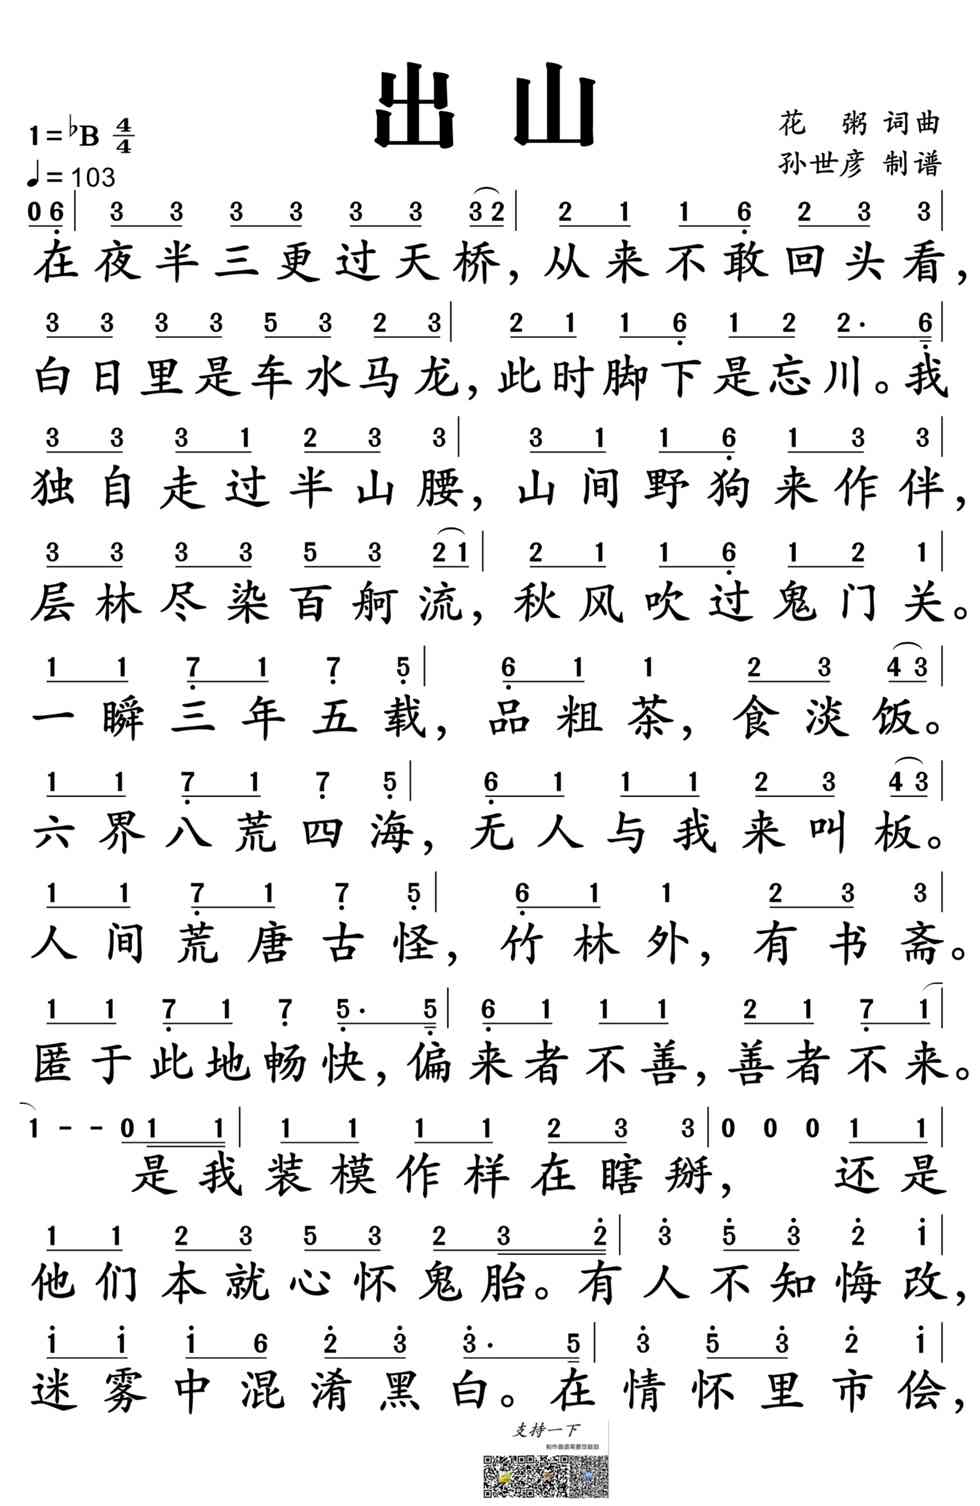 出山
1=♭B 4/4
花 粥 词曲
孙世彦 制谱
♩=103
0 6̣ | 3 3 3 3 3 3 3 2 | 2 1 1 6̣ 2 3 3 |
在夜半三更过天桥，从来不敢回头看，
3 3 3 3 5 3 2 3 | 2 1 1 6̣ 1 2 2· 6̣ |
白日里是车水马龙，此时脚下是忘川。我
3 3 3 1 2 3 3 | 3 1 1 6̣ 1 3 3 |
独自走过半山腰，山间野狗来作伴，
3 3 3 3 5 3 2 1 | 2 1 1 6̣ 1 2 1 |
层林尽染百舸流，秋风吹过鬼门关。
1 1 7̣ 1 7̣ 5̣ | 6̣ 1 1 2 3 4 3 |
一瞬三年五载，品粗茶，食淡饭。
1 1 7̣ 1 7̣ 5̣ | 6̣ 1 1 1 2 3 4 3 |
六界八荒四海，无人与我来叫板。
1 1 7̣ 1 7̣ 5̣ | 6̣ 1 1 2 3 3 |
人间荒唐古怪，竹林外，有书斋。
1 1 7̣ 1 7̣ 5̣· 5̣ | 6̣ 1 1 1 2 1 7̣ 1 |
匿于此地畅快，偏来者不善，善者不来。
1 - - 0 1 1 | 1 1 1 1 2 3 3 | 0 0 0 1 1 |
是我装模作样在瞎掰，还是
1 1 2 3 5 3 2 3 2̇ | 3̇ 5̇ 3̇ 2̇ 1̇ |
他们本就心怀鬼胎。有人不知悔改，
1̇ 1̇ 1̇ 6 2̇ 3̇ 3̇· 5 | 3̇ 5̇ 3̇ 2̇ 1̇ |
迷雾中混淆黑白。在情怀里市侩，
支持一下